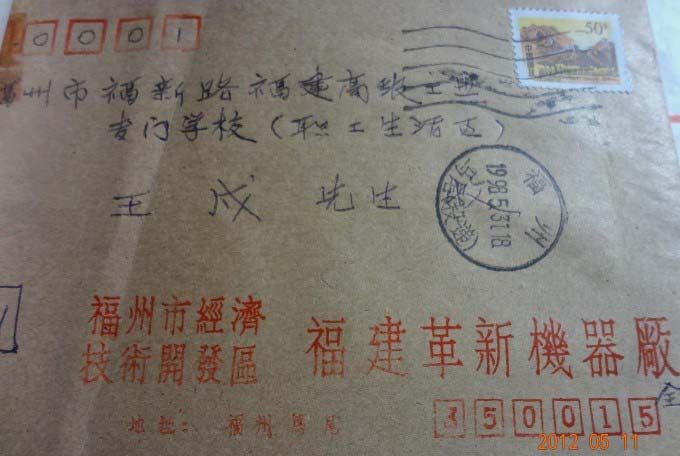 0001
50分
州市福新路福建高级工业
专门学校(职工生活区)
王成先生
福州
1998.5.31.18
福州市經濟
技術開發區
福建革新機器厰
地址: 福州馬尾
350015
全
2012 05 11